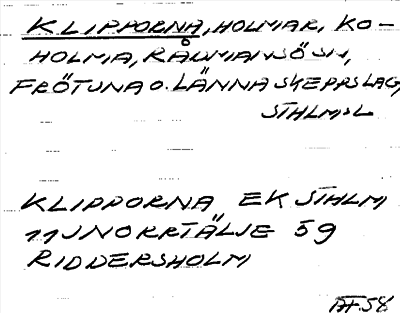 KLIPPORNA, HOLMAR, KO-
HOLMA, RÅDMANSÖ SN,
FRÖTUNA O. LÄNNA SKEPPSLAG,
STHLMS L
KLIPPORNA EK STHLM
11J NORRTÄLJE 59
RIDDERSHOLM
58